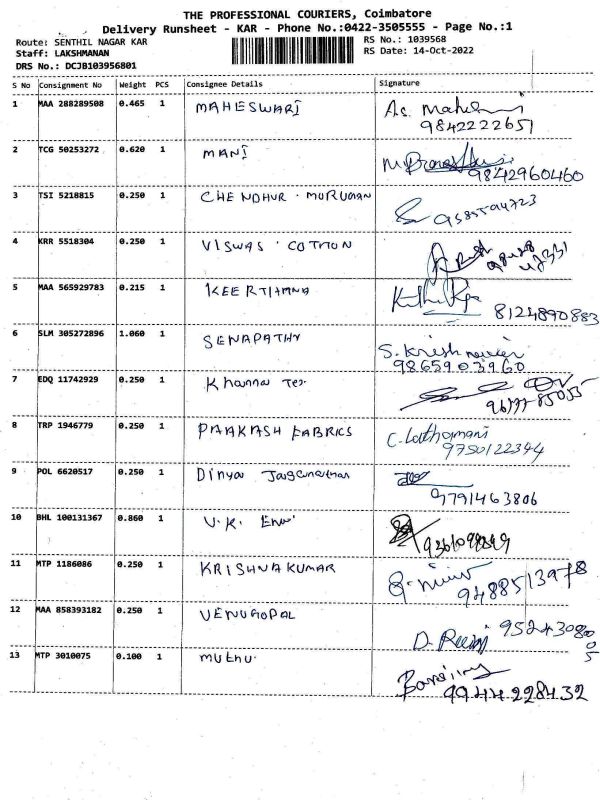 THE PROFESSIONAL COURIERS, Coimbatore
Delivery Runsheet - KAR - Phone No.:0422-3505555 - Page No.:1
Route: SENTHIL NAGAR KAR RS No.: 1039568
Staff: LAKSHMANAN RS Date: 14-Oct-2022
DRS No.: DCJB103956801
S No Consignment No Weight PCS Consignee Details Signature
1 MAA 288289508 0.465 1 MAHESWARI
9842222651
2 TCG 50253272 0.620 1 MANI
9842960460
3 TSI 5218815 0.250 1 CHENDHUR. MURUGAN
4 KRR 5518304 0.250 1 VISWAS. COTTON
5 MAA 565929783 0.215 1 KEERTHANA
8124890883
6 SLM 305272896 1.060 1 SENAPATHY
9865903960
7 EDQ 11742929 0.250 1 Khanna Tex
8 TRP 1946779 0.250 1 PAAKASH FABRICS C. Lathamani
9750122344
9 POL 6620517 0.250 1 Divya Jaganathan
9791463806
10 BHL 100131367 0.860 1 V.K.
11 MTP 1186086 0.250 1 KRISHNAKUMAR
9488513978
12 MAA 858393182 0.250 1 VENUGOPAL
13 MTP 3010075 0.100 1 MUTHU.
9944228432